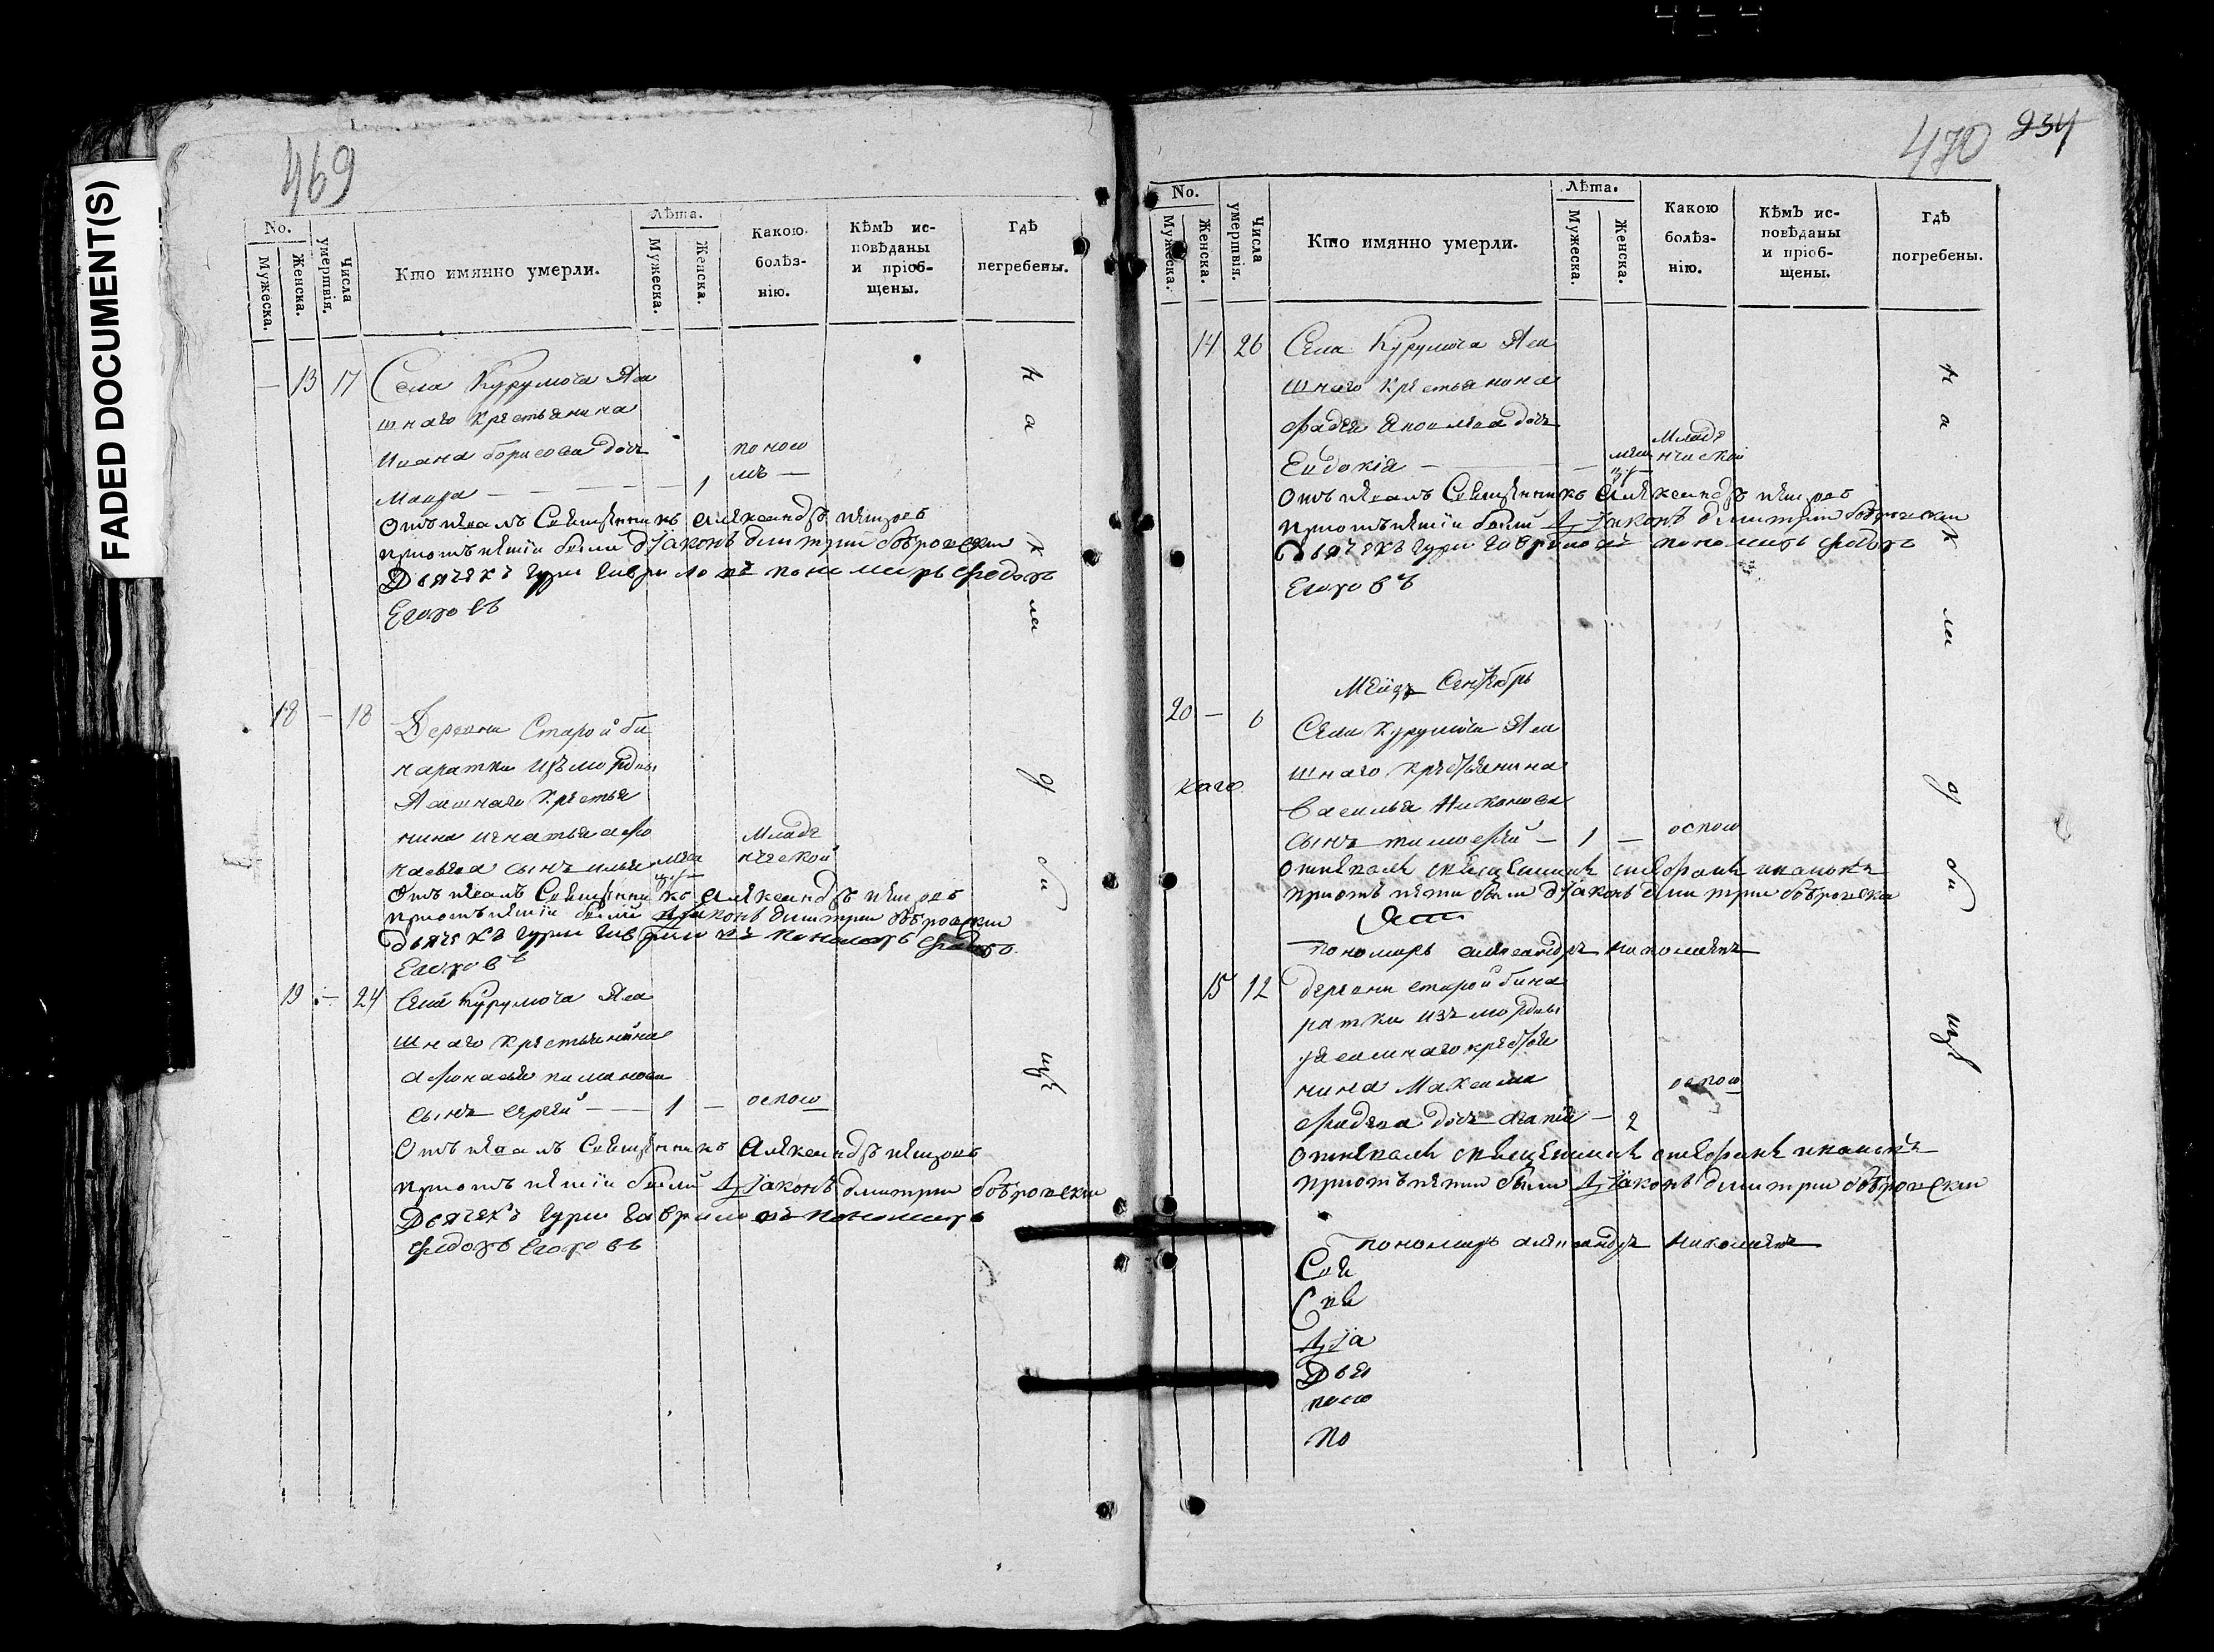 FADED DOCUMENT(S)
469
No.
Мужеска.
Женска.
Числа умертвія.
Кто имянно умерли.
Лѣта.
Мужеска.
Женска.
Какою болѣз-
нію.
Кѣмъ ис-
повѣданы
и пріоб-
щены.
Гдѣ
погребены.
13 17 Села Курумоча Яса
шнаго крестьянина
Ивана борисова дочь
Мавра — 1 поносо
мъ —
Отпѣвалъ Священникъ Александръ петровъ
приотпѣтіи были діаконъ димитрии бобровски
Дьячекъ гури гаврило въ пономарь федоръ
Егоровъ
18 — 18 Деревни Старой би
наратки изъ мордвы
Ясашнаго крестья
нина игнатья афо
насьева сынъ илья
младе
нческой
Отпѣвалъ Священникъ Александръ петровъ
приотпѣтіи были діаконъ димитрии бобровски
дьячекъ гури гаврило въ пономарь федоръ
Егоровъ
19 — 24 Села Курумоча Яса
шнаго крестьянина
афонасья
сынъ сергей — 1 — оспою
Отпѣвалъ Священникъ Александръ петровъ
приотпѣтіи были діаконъ димитрии бобровски
Дьячекъ гури гаврило въ пономарь
федоръ Егоровъ
на кла д би щѣ
470 234
No.
Мужеска.
Женска.
Числа умертвія.
Кто имянно умерли.
Лѣта.
Мужеска.
Женска.
Какою
болѣз-
нію.
Кѣмъ ис-
повѣданы
и пріоб-
щены.
Гдѣ
погребены.
14 26 Села Курумоча Яса
шнаго крестьянина
фадея дочь
Евдокія — младе
нческой
Отпѣвалъ Священникъ Александръ петровъ
приотпѣтіи были діаконъ димитрии бобровски
Дьячекъ гури гаврило въ пономарь федоръ
Егоровъ
Мѣсяцъ Сентябрь
20 — 6 Села курумоча Яса
шнаго крестьянина
каго
василья Никонова
сынъ тимофей — 1 — оспою
отпѣвалъ священникъ стефанъ ивановъ
приотпѣтіи были діаконъ димитрии бобровски
пономарь александръ николаевъ
15 12 деревни старой бина
ратки изъ мордвы
ясашнаго крестья
нина Максима оспою
фадеева дочь агапія — 2
отпѣвалъ священникъ стефанъ ивановъ
приотпѣтіи были діаконъ димитрии бобровски
пономарь александръ николаевъ
Свя
Сте
діа
Дья
поно
По
на кла д би щѣ